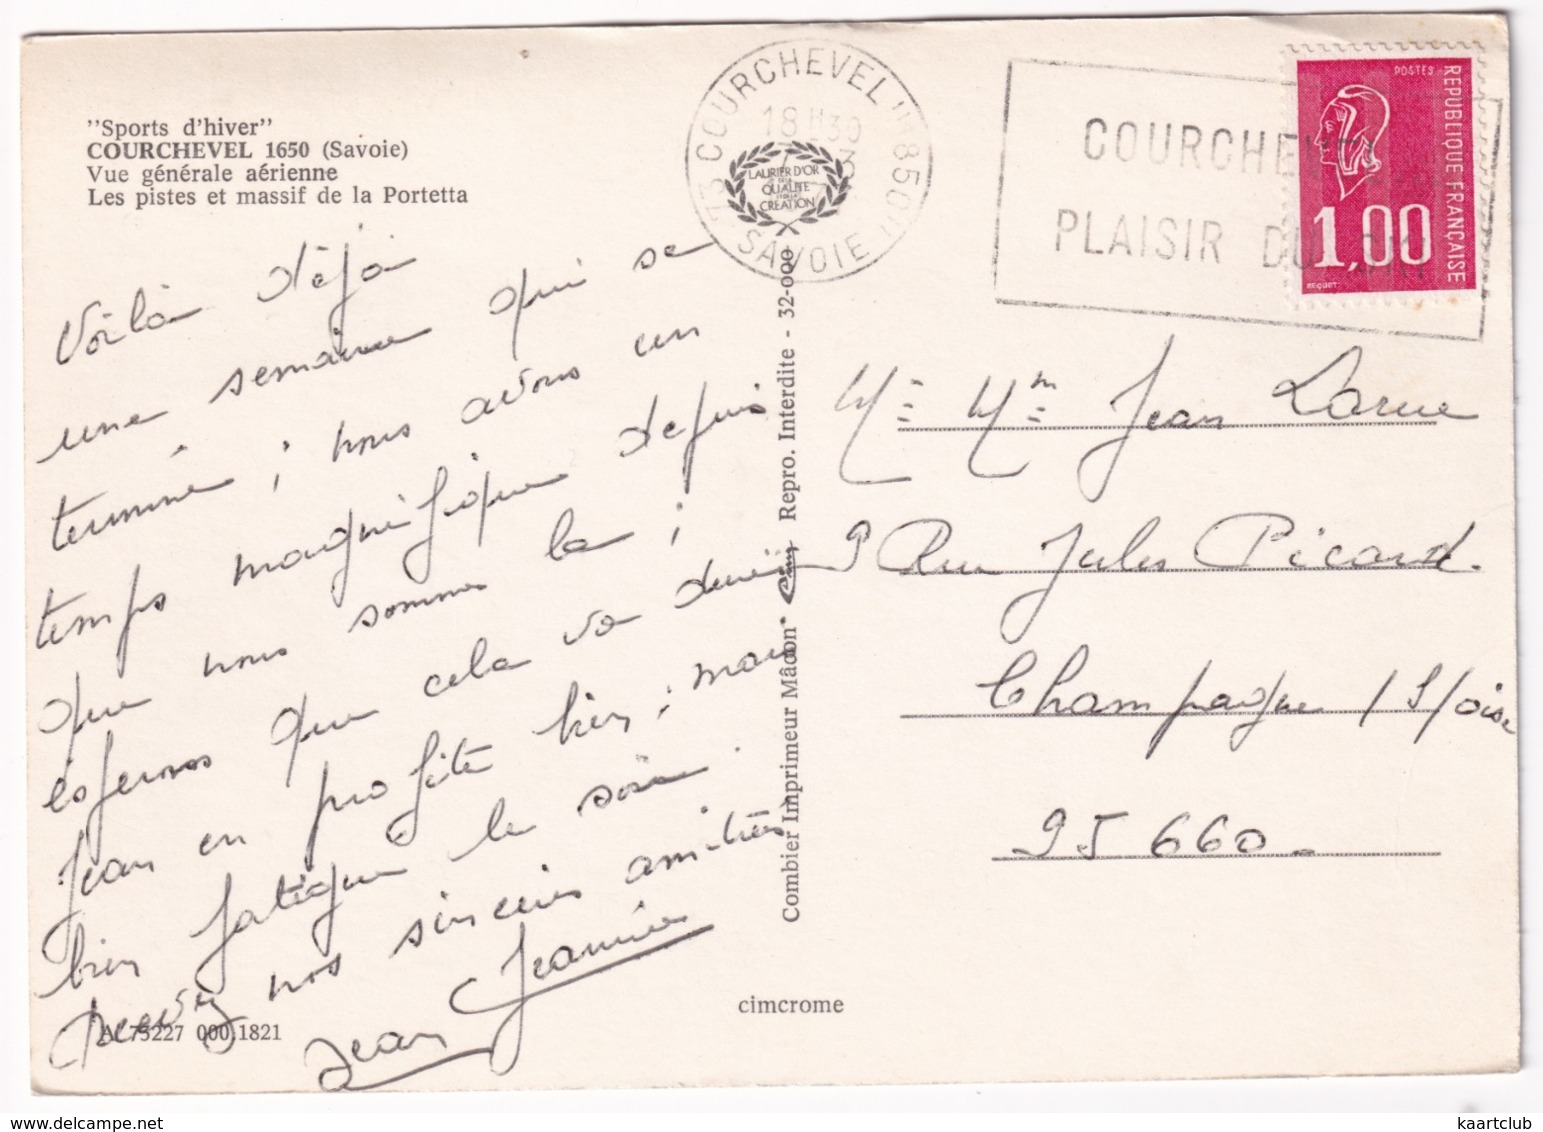 "Sports d'hiver"
COURCHEVEL 1650 (Savoie)
Vue générale aérienne
Les pistes et massif de la Portetta
Voilà déjà
une semaine qui se
termine ; nous avons un
temps magnifique depuis
que nous sommes la ;
espérons que cela va durer
Jean en profite bien ; mais
bien fatigué le soir.
recevez nos sincères amitiés
Jeannine
Jean
AL 73227 000.1821
cimcrome
Combier Imprimeur Mâcon
Cim
Repro. Interdite - 32-000
73 COURCHEVEL "1850"
18 H 30
3
SAVOIE
LAURIER D'OR
DE LA
QUALITÉ
ET DE LA
CRÉATION
COURCHEVEL
PLAISIR DU SKI
POSTES
REPUBLIQUE FRANÇAISE
1,00
BEQUET
Mr Mme Jean Larue
9 Rue Jules Picard.
Champagne / S/oise
95 660.
kaartclub